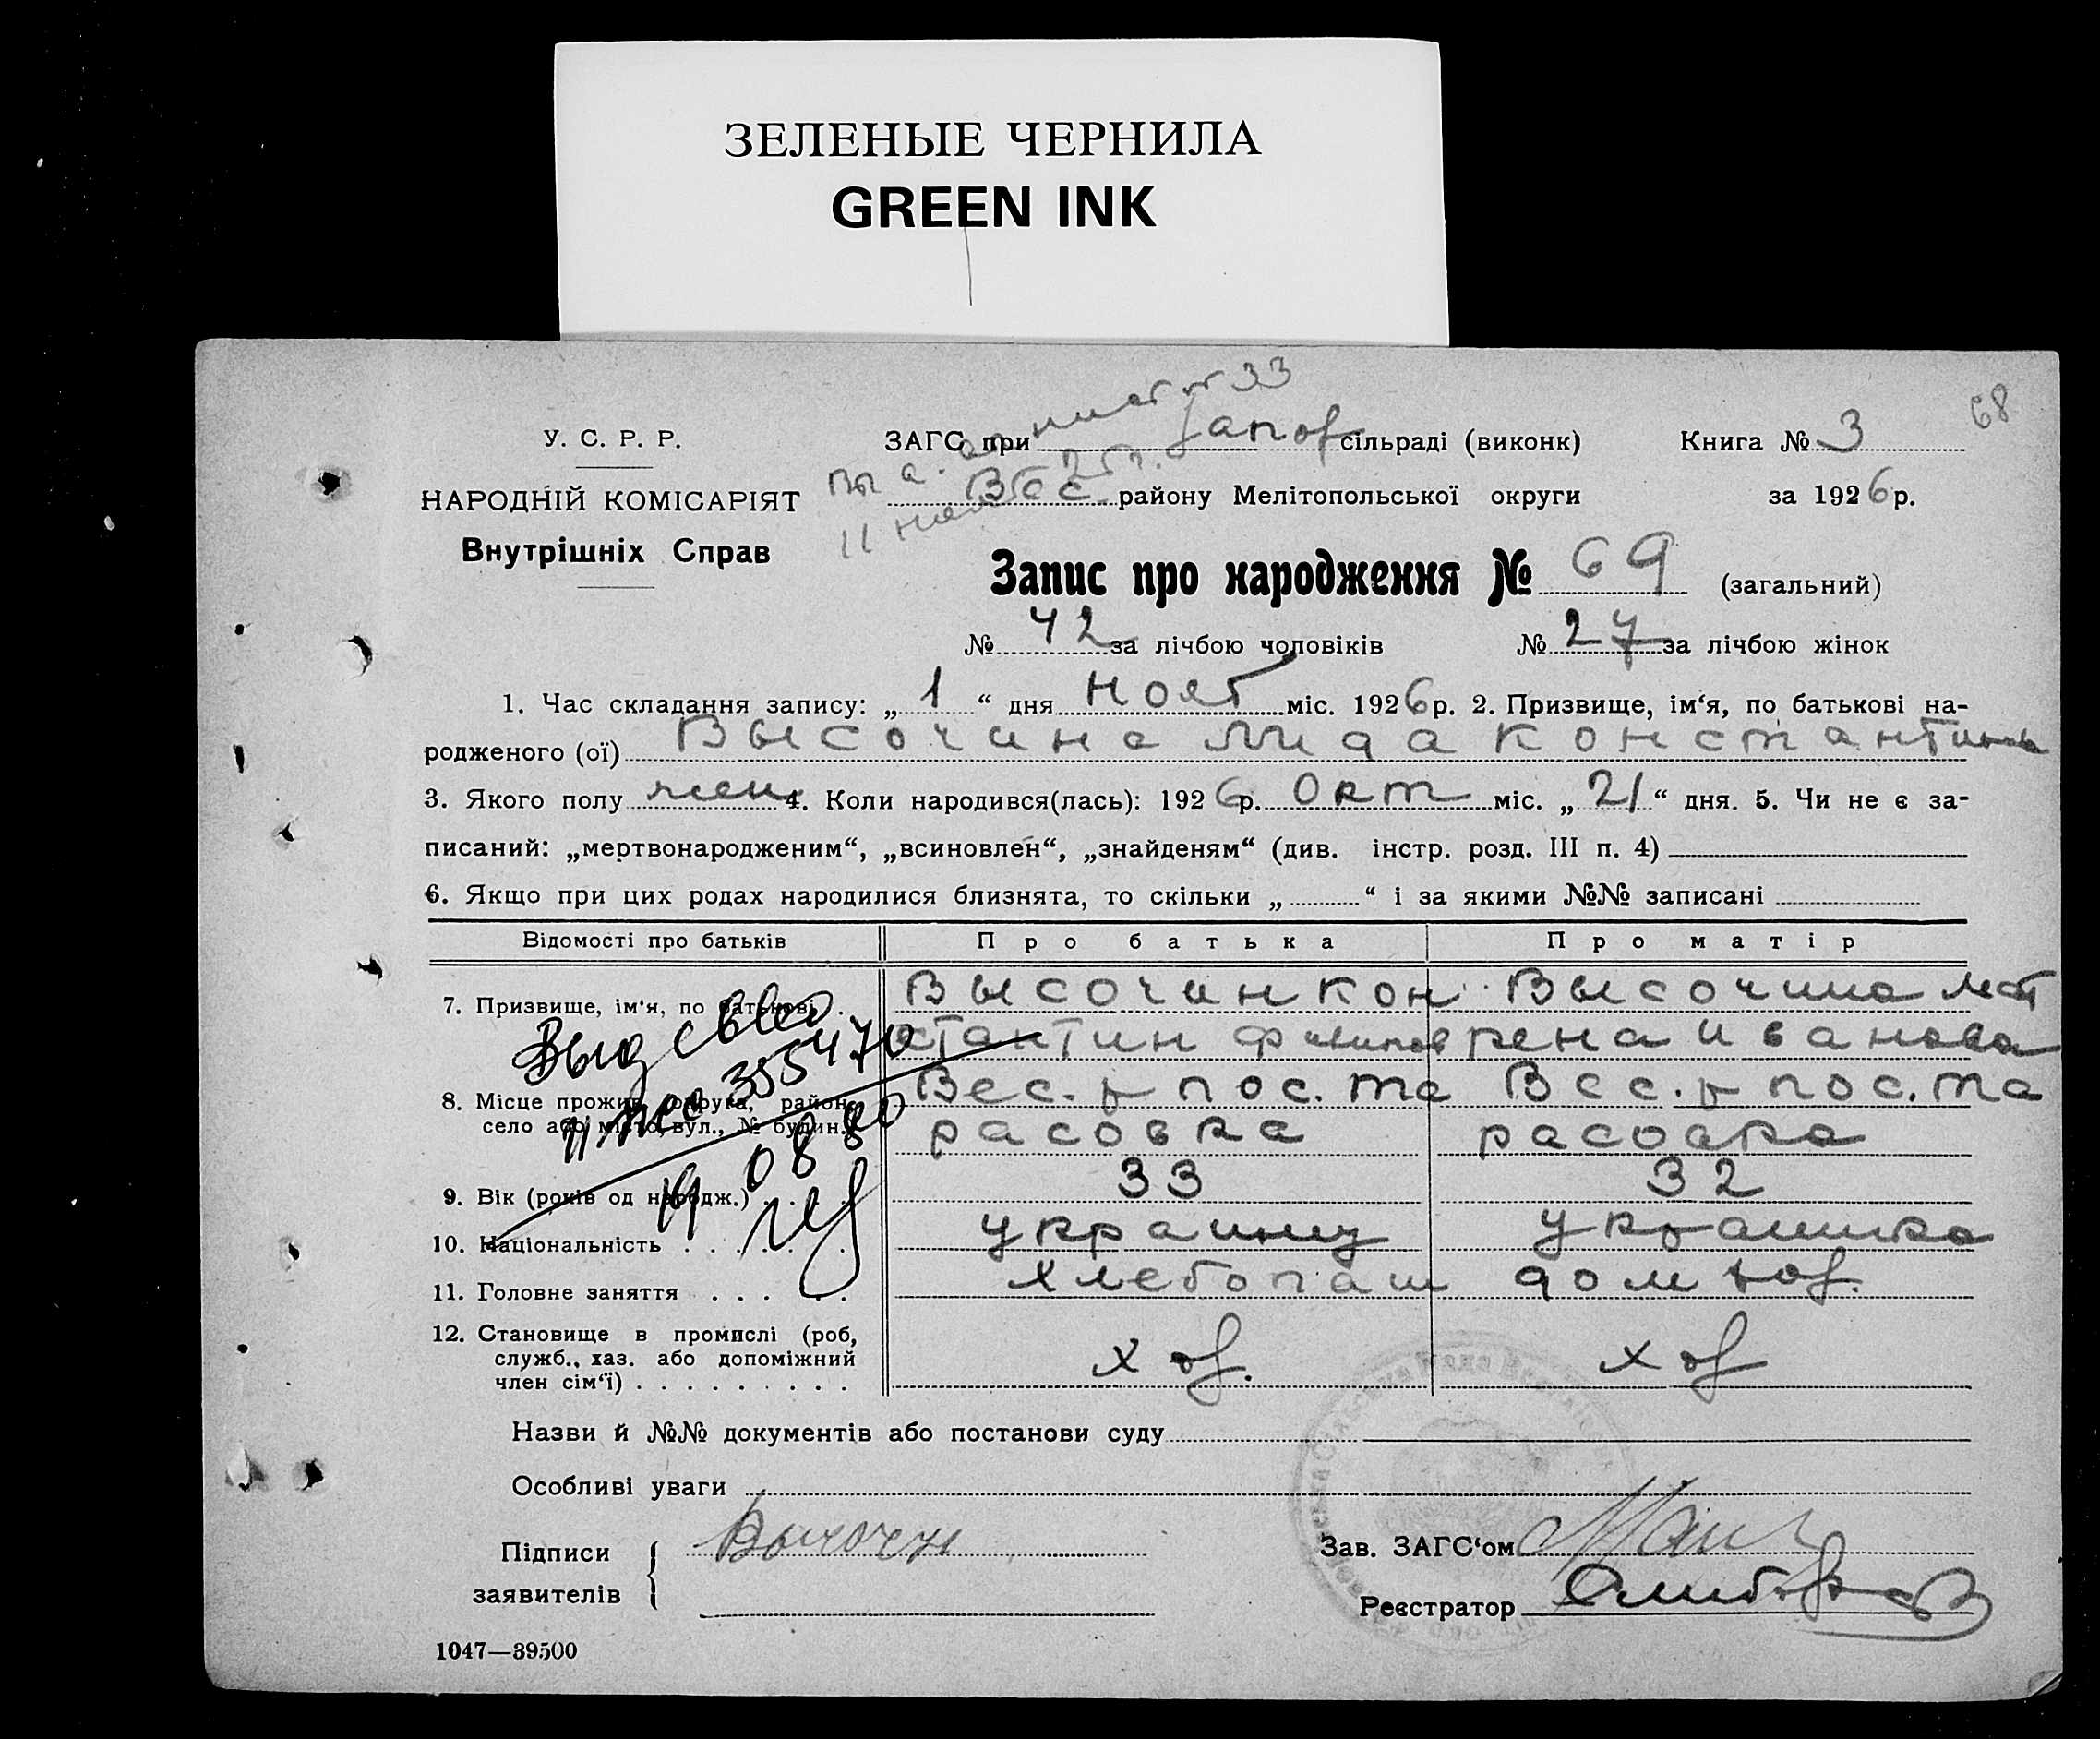 ЗЕЛЕНЫЕ ЧЕРНИЛА
GREEN INK
68
У. С. Р. Р.
ЗАГС при сільраді (виконк)
Книга № 3
НАРОДНІЙ КОМІСАРІЯТ
Вес району Мелітопольської округи
за 1926 р.
Внутрішніх Справ
Запис про народження № 69 (загальний)
№ 42 за лічбою чоловіків № 27 за лічбою жінок
1. Час складання запису: „ 1 “ дня Нояб міс. 1926 р. 2. Призвище, ім‘я, по батькові на-
родженого (ої) Высочина Лида Константинов
3. Якого полу жен 4. Коли народився(лась): 1926 р. Окт міс. „ 21 “ дня. 5. Чи не є за-
писаний: „мертвонародженим“, „всиновлен“, „знайденям“ (див. інстр. розд. III п. 4)
6. Якщо при цих родах народилися близнята, то скільки „ “ і за якими №№ записані
Відомості про батьків Про батька Про матір
7. Призвище, ім‘я, по батькові . Высочин Кон Высочина Мат
стантин Филипов рена Иванова
8. Місце прожив. округа, район, Вес. р пос. Та Вес. р пос. Та
село або місто, вул., № будин. расовка расовка
9. Вік (років од народж.) . . . . 33 32
10. Національність . . . . . . . украинц украинка
11. Головне заняття . . . . . . хлебопаш дом хоз.
12. Становище в промислі (роб,
служб., хаз. або допоміжний хоз. хоз
член сім‘ї) . . . . . . . . .
Выд св во
355470
19 08 80
Назви й №№ документів або постанови суду
Особливі уваги
Підписи Высочин
заявителів
Зав. ЗАГС‘ом
Реєстратор
1047—39500